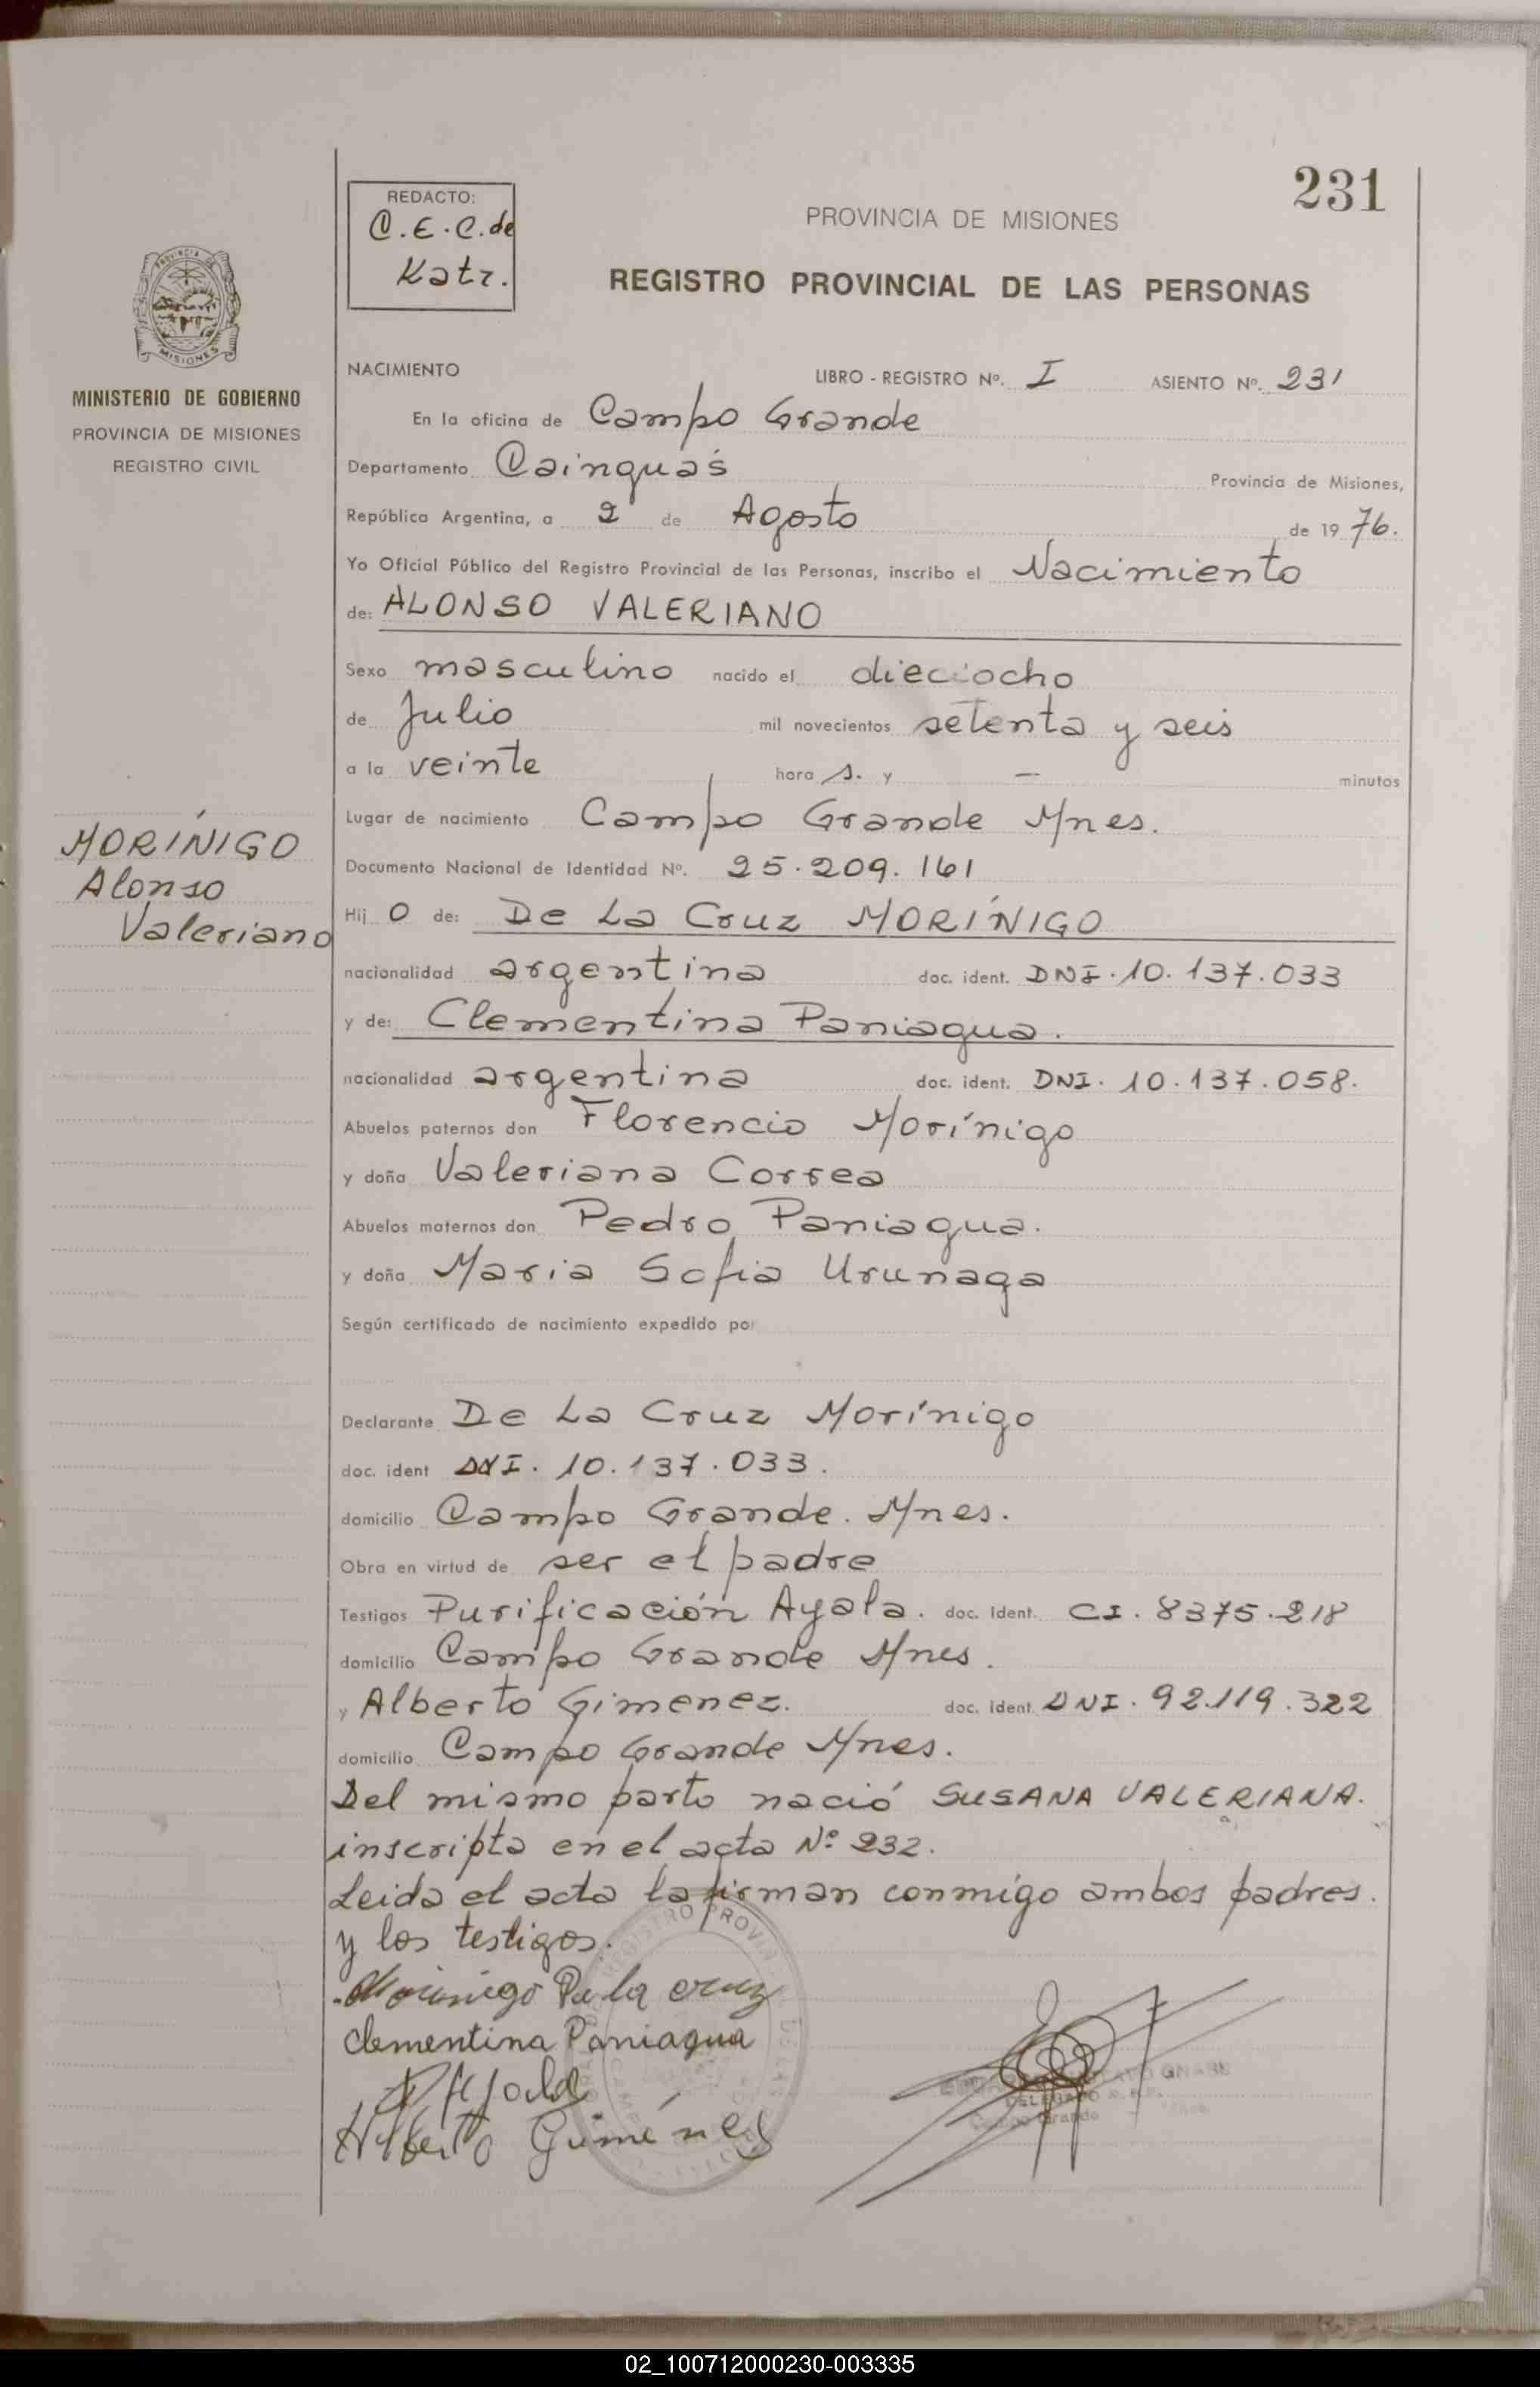 231
REDACTO:
C.E.C. de
Katz.
PROVINCIA DE MISIONES
REGISTRO PROVINCIAL DE LAS PERSONAS
MISIONES
MINISTERIO DE GOBIERNO
PROVINCIA DE MISIONES
REGISTRO CIVIL
NACIMIENTO LIBRO - REGISTRO Nº. I ASIENTO Nº. 231
En la oficina de Campo Grande
Departamento Cainguás Provincia de Misiones,
República Argentina, a 2 de Agosto de 1976.
Yo Oficial Público del Registro Provincial de las Personas, inscribo el Nacimiento
de: ALONSO VALERIANO
Sexo masculino nacido el dieciocho
de Julio mil novecientos setenta y seis
a la veinte hora s. y — minutos
Lugar de nacimiento Campo Grande Mnes.
MORÍNIGO
Alonso
Valeriano
Documento Nacional de Identidad Nº. 25.209.161
Hij o de: De La Cruz MORÍNIGO
nacionalidad argentina doc. ident. DNI. 10.137.033
y de: Clementina Paniagua.
nacionalidad argentina doc. ident. DNI. 10.137.058.
Abuelos paternos don Florencio Morínigo
y doña Valeriana Correa
Abuelos maternos don Pedro Paniagua.
y doña Maria Sofia Urunaga
Según certificado de nacimiento expedido por
Declarante De La Cruz Morínigo
doc. ident DNI. 10.137.033.
domicilio Campo Grande. Mnes.
Obra en virtud de ser el padre
Testigos Purificación Ayala. doc. ident. CI. 8375.218
domicilio Campo Grande Mnes.
y Alberto Gimenez. doc. ident. DNI. 92.119.322
domicilio Campo Grande Mnes.
Del mismo parto nació SUSANA VALERIANA.
inscripta en el acta Nº 232.
Leida el acta la firman conmigo ambos padres.
y los testigos.
Morinigo De la cruz
Clementina Paniagua
Alberto Giménez
DELEGADO
Campo Grande
02_100712000230-003335